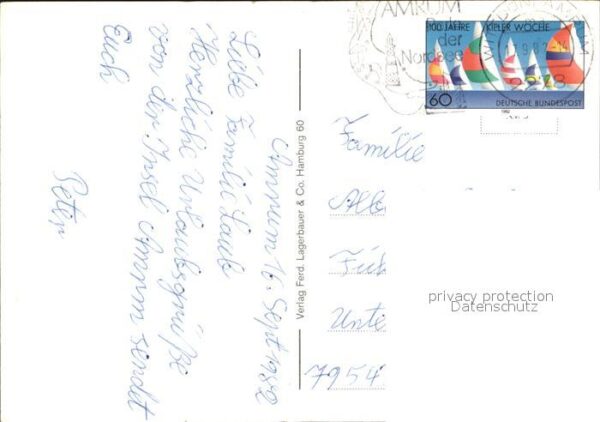 Amrum 16. Sept. 1982
Liebe Familie
Herzliche Urlaubsgrüße
von der Insel Amrum sendet
Euch
Peter
Verlag Ferd. Lagerbauer & Co. Hamburg 60
AMRUM
in
der
Nordsee
100 JAHRE KIELER WOCHE
60
DEUTSCHE BUNDESPOST
1982
2278
Familie
Alb
Füs
Unte
7954
privacy protection
Datenschutz